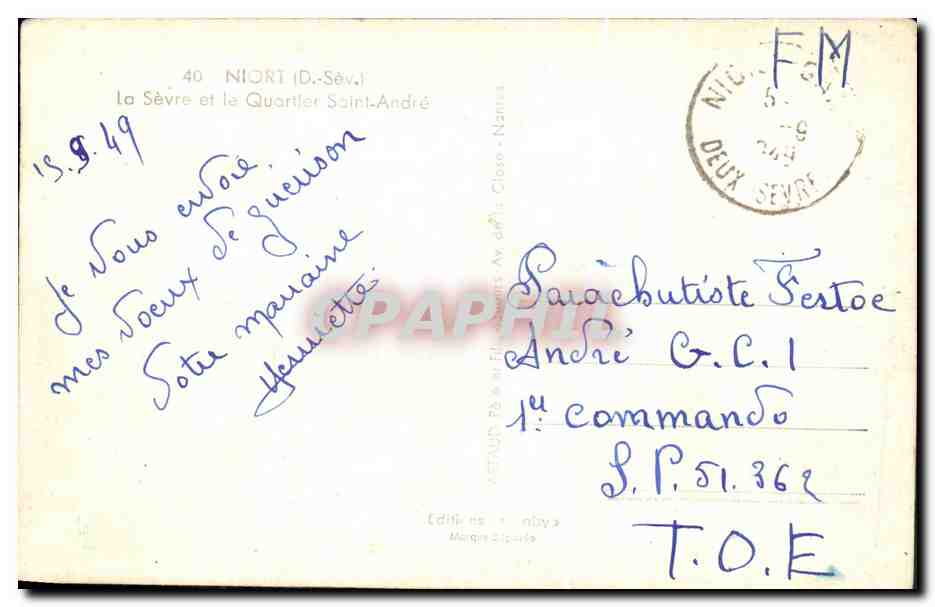 FM
40 NIORT (D.-Sèv.)
La Sèvre et le Quartier Saint-André
15.9.49
Je vous envoie
mes voeux de guérison
Votre marraine
Henriette.
NIORT
5
-9
949
DEUX SEVRE
Parachutiste Festoc
André G.C.1
1er commando
S.P. 51.362
T.O.E
ARTAUD Père et Fils Nantes Av. de la Close - Nantes
Editions
Marque Déposée
CPAPHIL